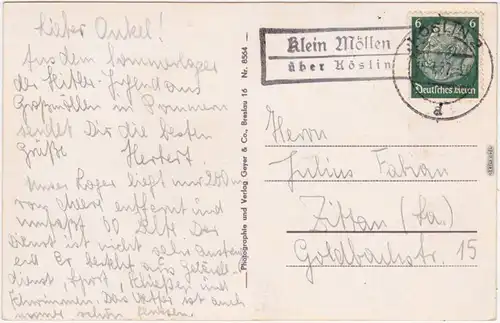 Lieber Onkel!
Aus dem Sommerlager
der Hitler-Jugend aus
Großmöllen in Pommern
sendet Dir die besten
Grüße Herbert.
Unser Lager liegt nur 200 m
vom Meere entfernt und
umfaßt 60 Zelte. Der
Dienst ist nicht sehr
end. Er besteht aus Gelände-
dienst, Sport, Schießen und
Schwimmen. Das Wetter ist auch
immer schön gewesen.
Photographie und Verlag Geyer & Co., Breslau 16 Nr. 8564
Klein Möllen
über Köslin
KÖSLIN
d
6 6
Deutsches Reich
Herrn
Julius Fabian
Zittau (Sa.)
Goldbachstr. 15